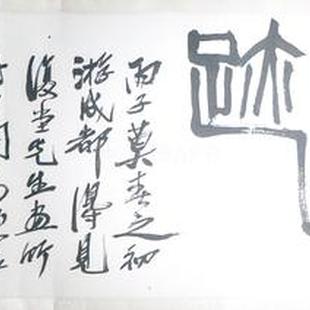 跡
丙子莫春之初
游成都得見
復堂先生畫所